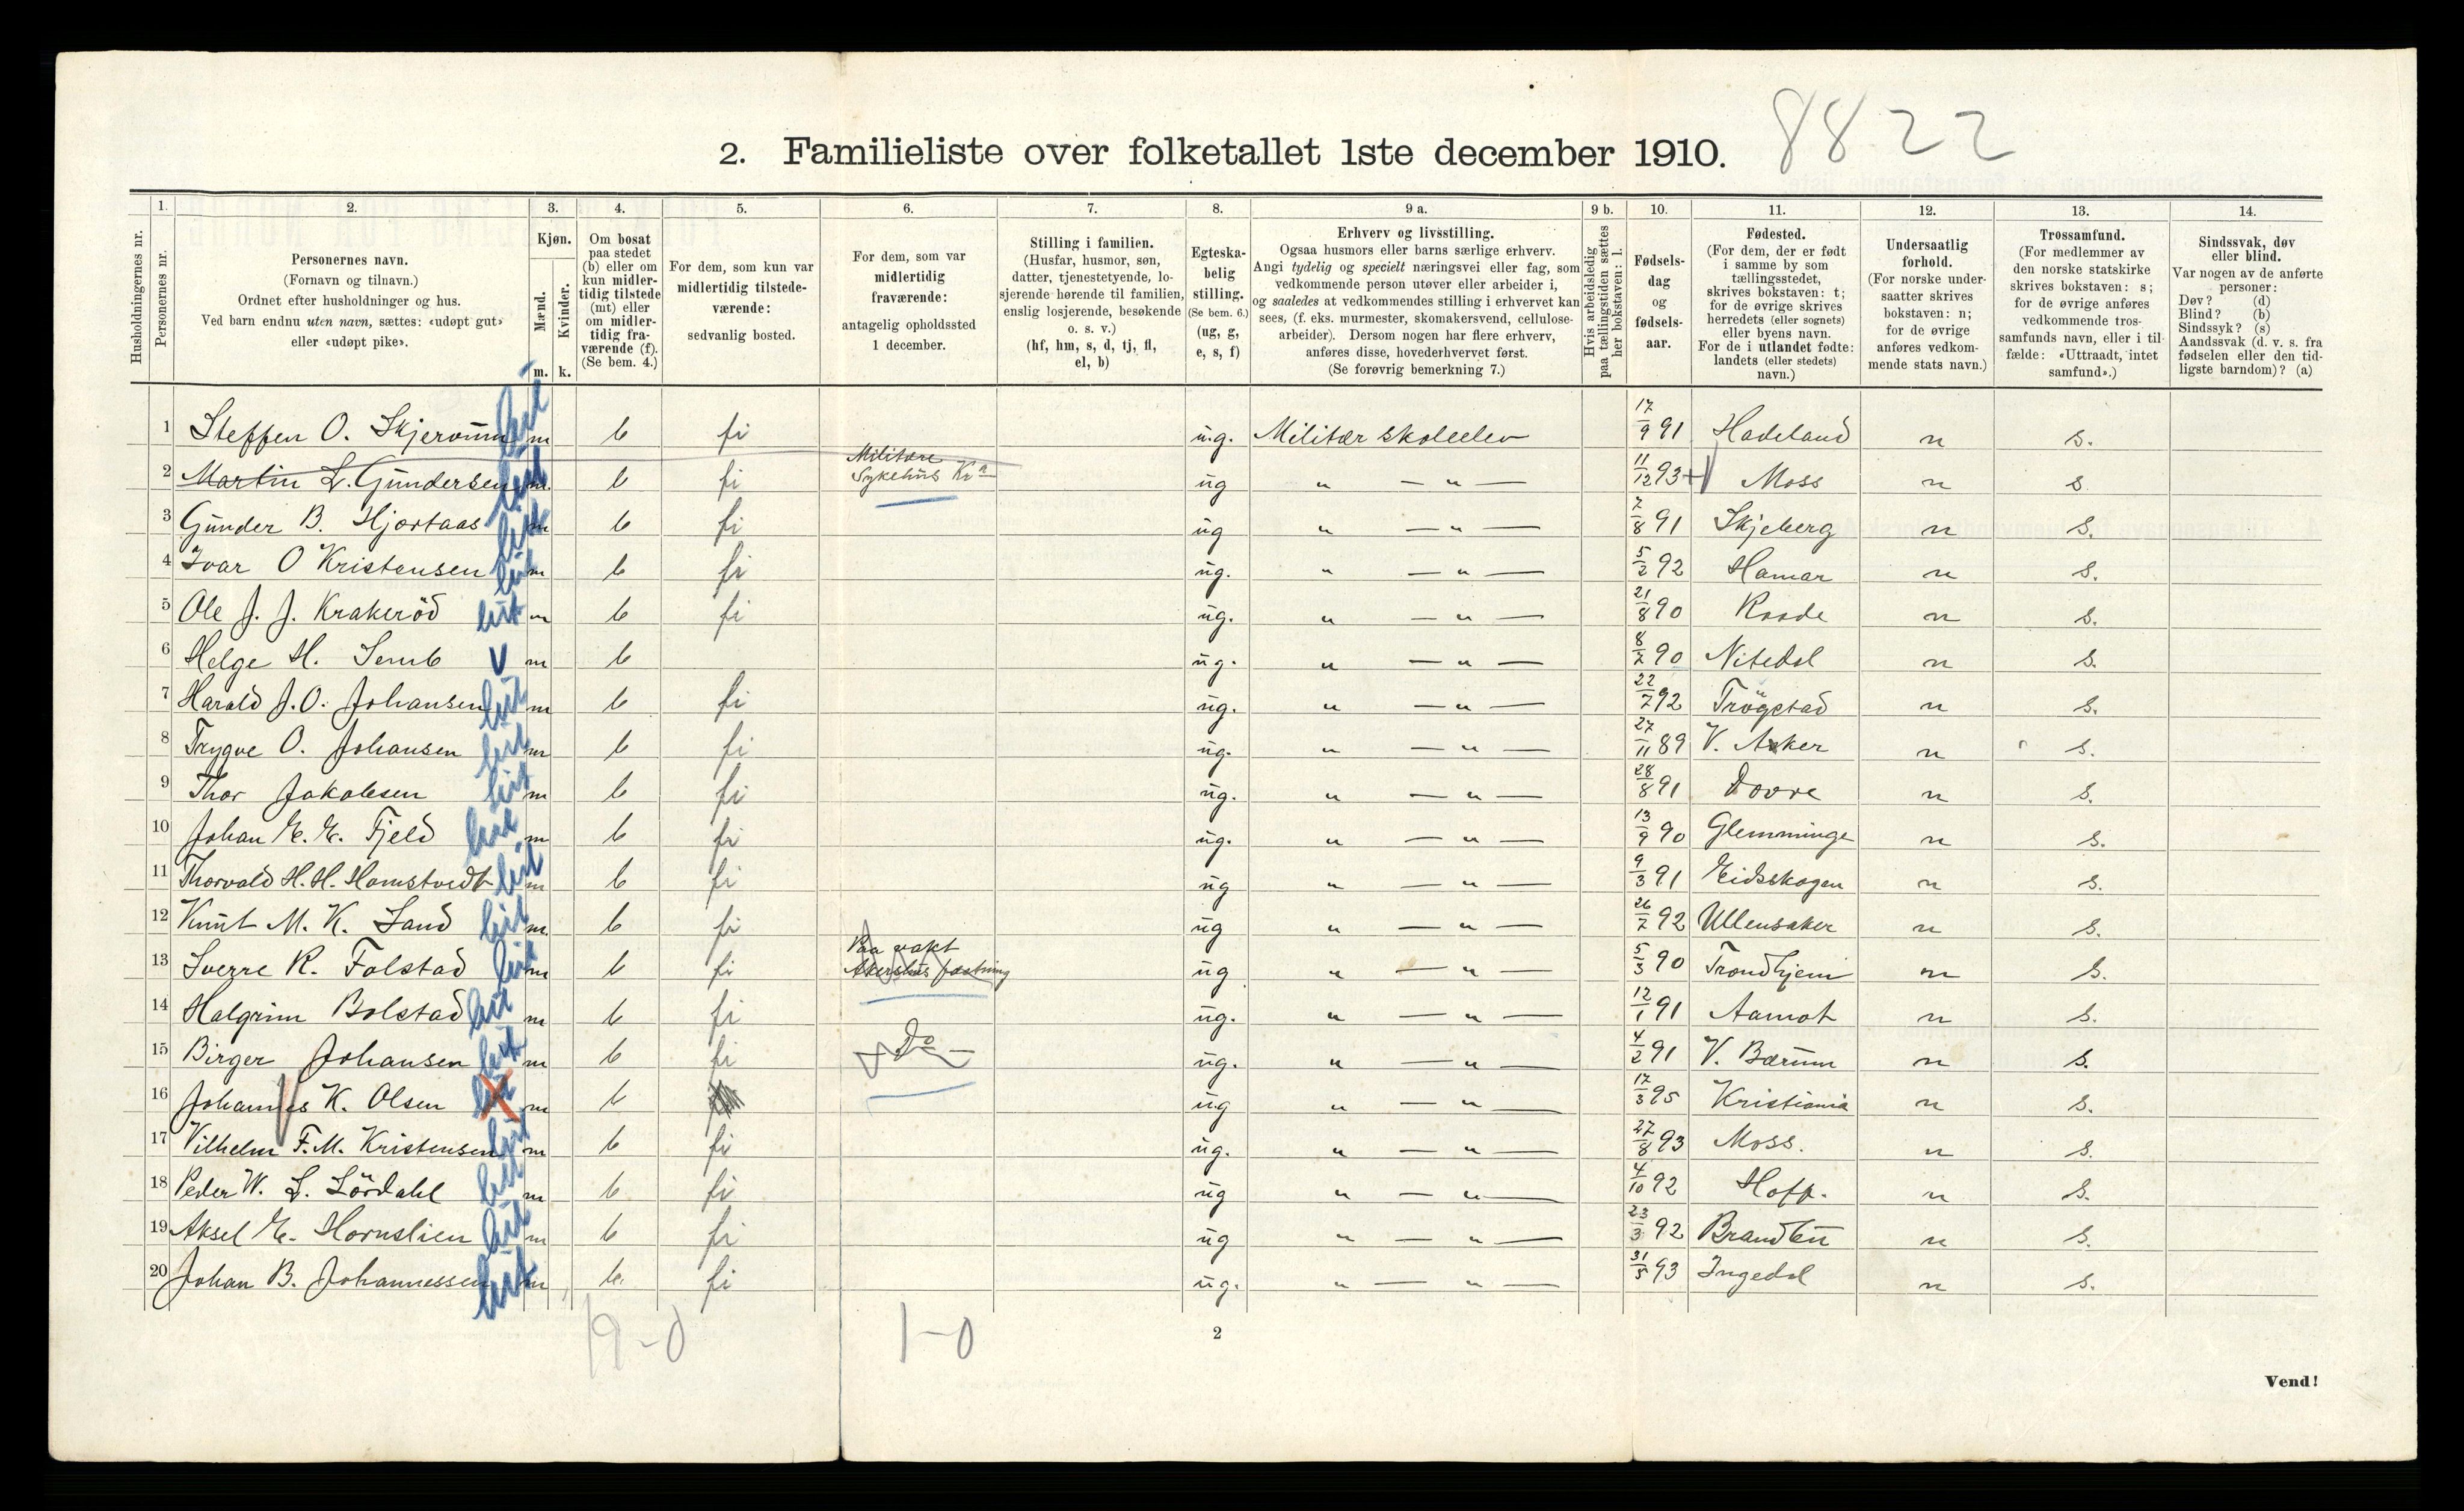 8822
2. Familieliste over folketallet 1ste december 1910.
1. 2. 3. 4. 5. 6. 7. 8. 9 a. 9 b. 10. 11. 12. 13. 14.
Husholdningernes nr.
Personernes nr.
Personernes navn.
(Fornavn og tilnavn.)
Ordnet efter husholdninger og hus.
Ved barn endnu uten navn, sættes: «udøpt gut»
eller «udøpt pike».
Kjøn.
Mænd.
Kvinder.
m. k.
Om bosat
paa stedet
(b) eller om
kun midler-
tidig tilstede
(mt) eller
om midler-
tidig fra-
værende (f).
(Se bem. 4.)
For dem, som kun var
midlertidig tilstede-
værende:
sedvanlig bosted.
For dem, som var
midlertidig
fraværende:
antagelig opholdssted
1 december.
Stilling i familien.
(Husfar, husmor, søn,
datter, tjenestetyende, lo-
sjerende hørende til familien,
enslig losjerende, besøkende
o. s. v.)
(hf, hm, s, d, tj, fl,
el, b)
Egteska-
belig
stilling.
(Se bem. 6.)
(ug, g,
e, s, f)
Erhverv og livsstilling.
Ogsaa husmors eller barns særlige erhverv.
Angi tydelig og specielt næringsvei eller fag, som
vedkommende person utøver eller arbeider i,
og saaledes at vedkommendes stilling i erhvervet kan
sees, (f. eks. murmester, skomakersvend, cellulose-
arbeider). Dersom nogen har flere erhverv,
anføres disse, hovederhvervet først.
(Se forøvrig bemerkning 7.)
Hvis arbeidsledig
paa tællingstiden sættes
her bokstaven: l.
Fødsels-
dag
og
fødsels-
aar.
Fødested.
(For dem, der er født
i samme by som
tællingsstedet,
skrives bokstaven: t;
for de øvrige skrives
herredets (eller sognets)
eller byens navn.
For de i utlandet fødte:
landets (eller stedets)
navn.)
Undersaatlig
forhold.
(For norske under-
saatter skrives
bokstaven: n;
for de øvrige
anføres vedkom-
mende stats navn.)
Trossamfund.
(For medlemmer av
den norske statskirke
skrives bokstaven: s;
for de øvrige anføres
vedkommende tros-
samfunds navn, eller i til-
fælde: «Uttraadt, intet
samfund».)
Sindssvak, døv
eller blind.
Var nogen av de anførte
personer:
Døv? (d)
Blind? (b)
Sindssyk? (s)
Aandssvak (d. v. s. fra
fødselen eller den tid-
ligste barndom)? (a)
1 Steffen O. Skjerven m b fi ug. Militær skoleelev 17/9 91 Hadeland n s.
2 Martin L. Gundersen m b fi Militære Sykehus Kra ug " — " — 11/12 93 Moss n s
3 Gunder B. Hjortaas m b fi ug " — " — 7/8 91 Skjeberg n s.
4 Ivar O Kristensen m b fi ug. " — " — 5/2 92 Hamar n s.
5 Ole J. J. Krakeröd m b fi ug. " — " — 21/8 90 Raade n s.
6 Helge H. Semb m b ug. " — " — 8/7 90 Nitedal n s.
7 Harald J. O. Johansen m b fi ug. " — " — 22/7 92 Trögstad n s.
8 Trygve O. Johansen m b fi ug. " — " — 27/11 89 V. Aker n s.
9 Thor Jakobsen m b fi ug. " — " — 28/8 91 Dovre n s.
10 Johan E. E. Fjeld m b fi ug. " — " — 13/9 90 Glemminge n s.
11 Thorvald H. H. Homstvedt m b fi ug " — " — 9/3 91 Eidsskogen n s.
12 Knut M. K. Sand m b fi ug " — " — 26/7 92 Ullensaker n s.
13 Sverre R. Folstad m b fi Paa vakt Akershus fæstning ug " — " — 5/3 90 Trondhjem n s.
14 Halgrim Bolstad m b fi ug. " — " — 12/1 91 Aamot n s.
15 Birger Johansen m b fi Do — ug. " — " — 4/2 91 V. Bærum n s.
16 Johannes K. Olsen m b ug " — " — 17/3 95 Kristiania n s.
17 Vilhelm F. M. Kristensen m b fi ug. " — " — 27/8 93 Moss. n s.
18 Peder W. L. Lördahl m b fi ug " — " — 4/10 92 Hoff. n s.
19 Aksel E. Hornslien m b fi ug " — " — 23/3 92 Brandbu n s.
20 Johan B. Johannessen m b. fi ug. " — " — 31/5 93 Ingedal n s.
19-0 1-0
2
Vend!